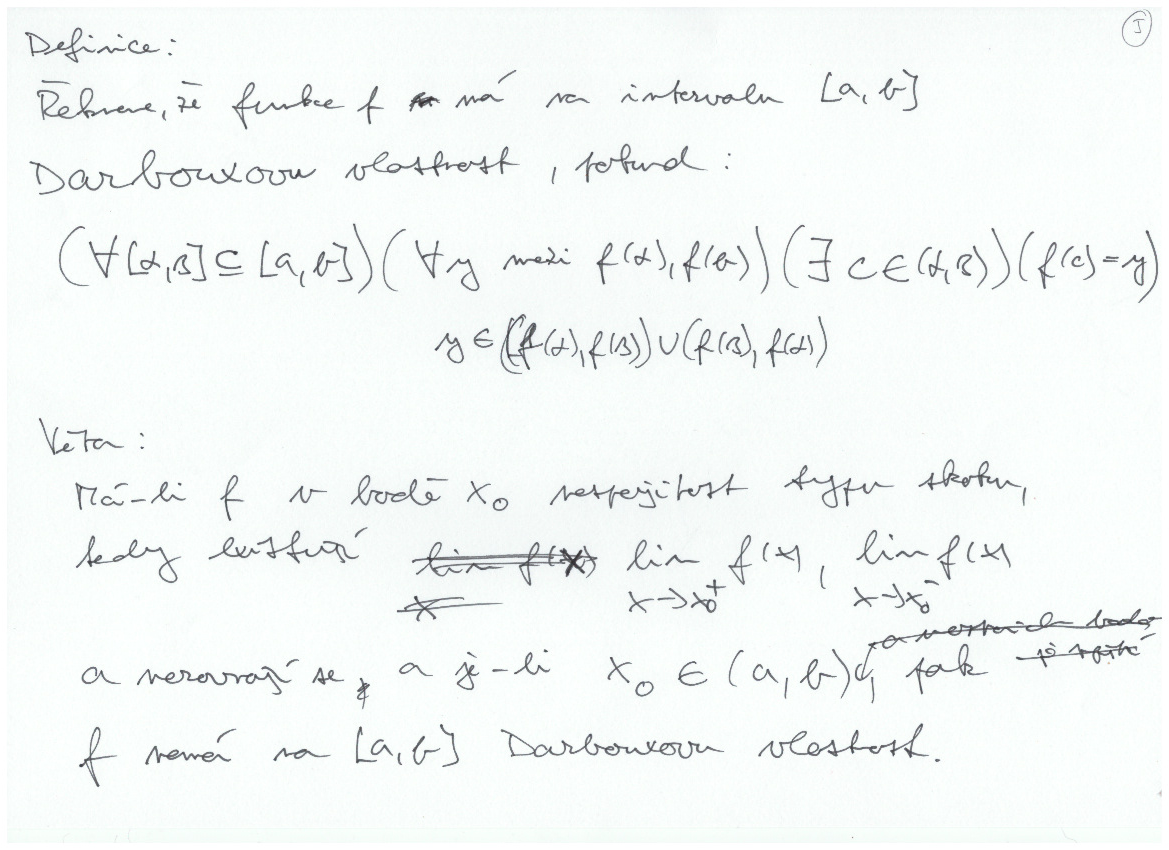 I
Definice:
Řekneme, že funkce f má na intervalu [a, b]
Darbouxovu vlastnost, pokud:
(∀[α,β]⊆[a,b])(∀y mezi f(α), f(b))(∃ c∈(α,β))(f(c)=y)
y ∈ (f(α), f(β))∪(f(β), f(α))
Věta:
Má-li f v bodě x₀ nespojitost typu skoku,
tedy existují lim f(x) lim f(x), lim f(x)
x x→x₀⁺ x→x₀⁻
a nerovnají se, a je-li x₀ ∈ (a, b), pak
f nemá na [a, b] Darbouxovu vlastnost.